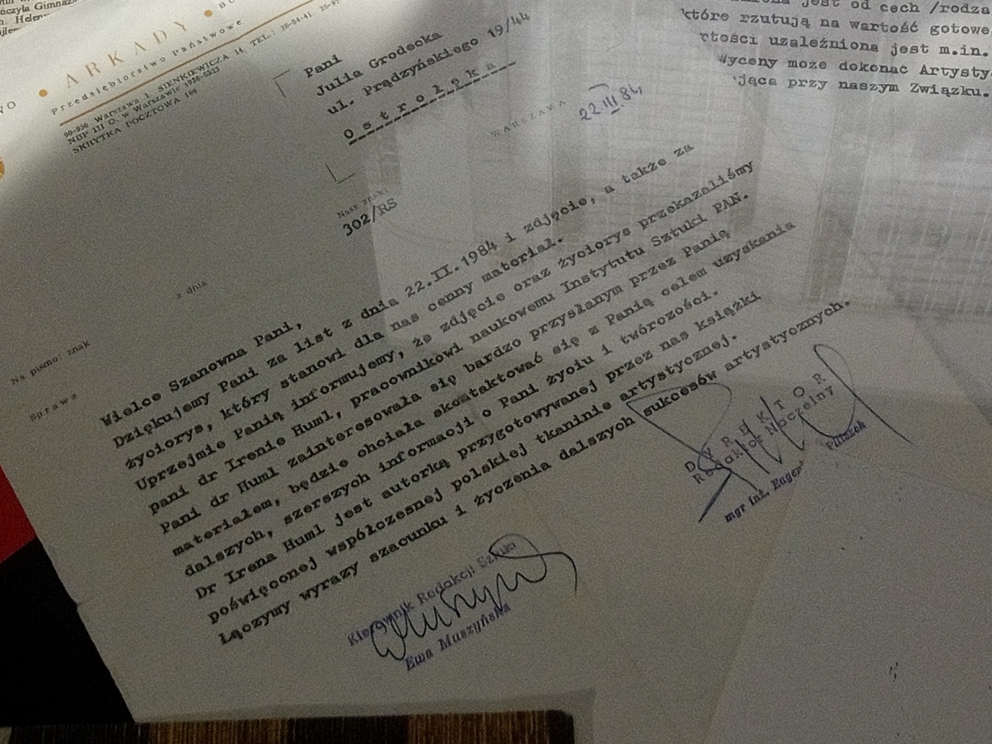 ARKADY
Przedsiębiorstwo Państwowe
00-950 Warszawa 1, SIENKIEWICZA 14, TEL.:
NBP III O. w Warszawie
SKRYTKA POCZTOWA 169
Pani
Julia Grodecka
ul. Prądzyńskiego 19/44
Ostrołęka
WARSZAWA
22 III 84
Nasz znak
302/RS
z dnia
Na pismo: znak
Sprawa
Wielce Szanowna Pani,
Dziękujemy Pani za list z dnia 22.II.1984 i zdjęcie, a także za
życiorys, który stanowi dla nas cenny materiał.
Uprzejmie Panią informujemy, że zdjęcie oraz życiorys przekazaliśmy
pani dr Irenie Huml, pracownikowi naukowemu Instytutu Sztuki PAN.
Pani dr Huml zainteresowała się bardzo przysłanym przez Panią
materiałem, będzie chciała skontaktować się z Panią celem uzyskania
dalszych, szerszych informacji o Pani życiu i twórczości.
Dr Irena Huml jest autorką przygotowanej przez nas książki
poświęconej współczesnej polskiej tkaninie artystycznej.
Łączymy wyrazy szacunku i życzenia dalszych sukcesów artystycznych.
Kierownik Redakcji Sztuki
Ewa Muszyńska
DYREKTOR
Redaktor Naczelny
mgr inż.
jest od cech /rodza
które rzutują na wartość gotowe
uzależniona jest m.in.
może dokonać Artysty
przy naszym Związku.